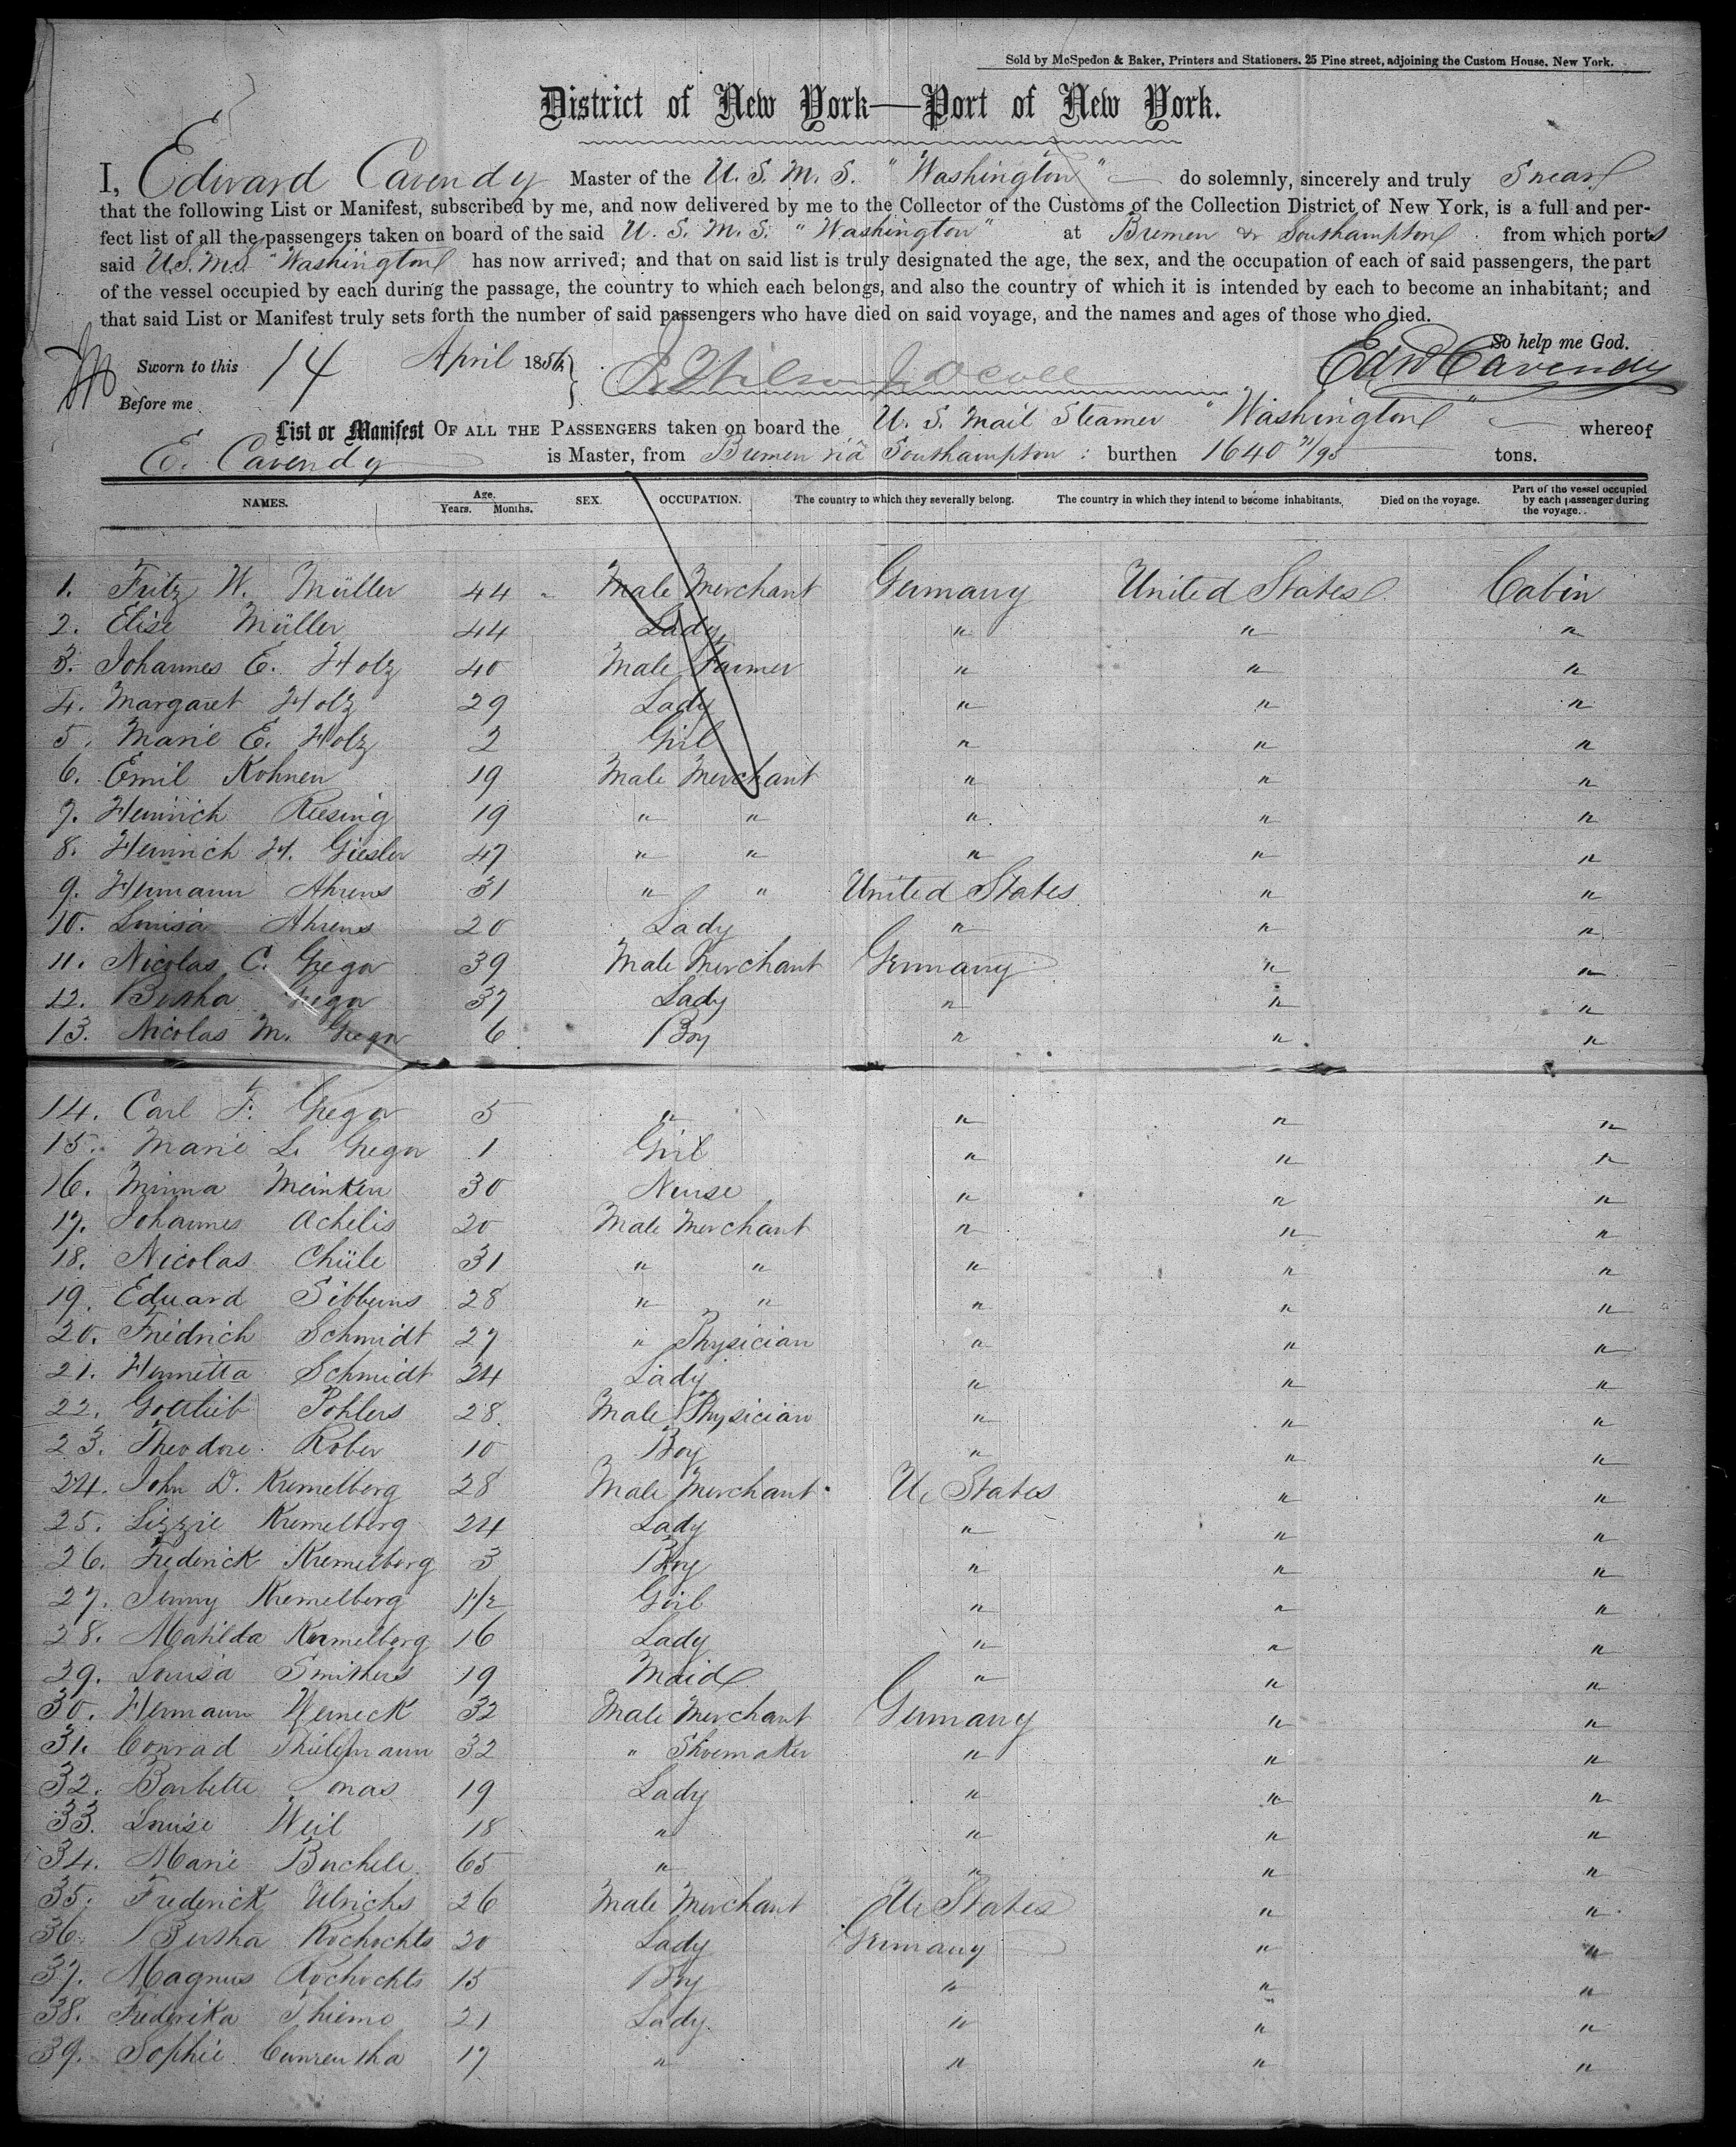 Sold by McSpedon & Baker, Printers and Stationers, 25 Pine street, adjoining the Custom House, New York.
District of New York—Port of New York.
I, Edward Cavendy Master of the U. S. M. S. "Washington" do solemnly, sincerely and truly Swear
that the following List or Manifest, subscribed by me, and now delivered by me to the Collector of the Customs of the Collection District of New York, is a full and per-
fect list of all the passengers taken on board of the said U. S. M. S. "Washington" at Bremen & Southampton from which ports
said U.S.M.S. "Washington" has now arrived; and that on said list is truly designated the age, the sex, and the occupation of each of said passengers, the part
of the vessel occupied by each during the passage, the country to which each belongs, and also the country of which it is intended by each to become an inhabitant; and
that said List or Manifest truly sets forth the number of said passengers who have died on said voyage, and the names and ages of those who died.
So help me God.
Sworn to this 14 April 1856 Edwd Cavendy
Before me
List or Manifest OF ALL THE PASSENGERS taken on board the U. S. Mail Steamer "Washington" whereof
E. Cavendy is Master, from Bremen viâ Southampton : burthen 1640 71/95 tons.
NAMES. Age. Years. Months. SEX. OCCUPATION. The country to which they severally belong. The country in which they intend to become inhabitants. Died on the voyage. Part of the vessel occupied by each passenger during the voyage.
1. Fritz W. Müller 44 Male Merchant Germany United States Cabin
2. Elise Müller 44 Lady " " "
3. Johannes E. Holz 40 Male Farmer " " "
4. Margaret Holz 29 Lady " " "
5. Marie E. Holz 2 Girl " " "
6. Emil Kohnen 19 Male Merchant " " "
7. Heinrich Reesing 19 " " " " "
8. Heinrich H. Giesler 47 " " " " "
9. Hermann Ahrens 31 " " United States " "
10. Louisa Ahrens 20 Lady " " "
11. Nicolas C. Gregor 39 Male Merchant Germany " "
12. Bertha Gregor 37 Lady " " "
13. Nicolas M. Gregor 6 Boy " " "
14. Carl F. Gregor 5 " " " "
15. Marie L. Gregor 1 Girl " " "
16. Minna Meinken 30 Nurse " " "
17. Johannes Achelis 20 Male Merchant " " "
18. Nicolas Chüle 31 " " " " "
19. Eduard Sibberns 28 " " " " "
20. Friedrich Schmidt 27 " Physician " " "
21. Henrietta Schmidt 24 Lady " " "
22. Gottlieb Pohlers 28 Male Physician " " "
23. Theodore Rober 10 Boy " " "
24. John D. Kremelberg 28 Male Merchant U. States " "
25. Lizzie Kremelberg 24 Lady " " "
26. Frederick Kremelberg 3 Boy " " "
27. Jenny Kremelberg 1 1/2 Girl " " "
28. Matilda Kremelberg 16 Lady " " "
29. Louisa Smithers 19 Maid " " "
30. Hermann Werneck 32 Male Merchant Germany " "
31. Conrad 32 " Shoemaker " " "
32. Barbette 19 Lady " " "
33. Louise Weil 18 " " " "
34. Marie Buchele 65 " " " "
35. Frederick Ulrichs 26 Male Merchant U. States " "
36. Bertha Rochochts 20 Lady Germany " "
37. Magnus Rochochts 15 Boy " " "
38. Frederika Thieme 21 Lady " " "
39. Sophie 17 " " " "